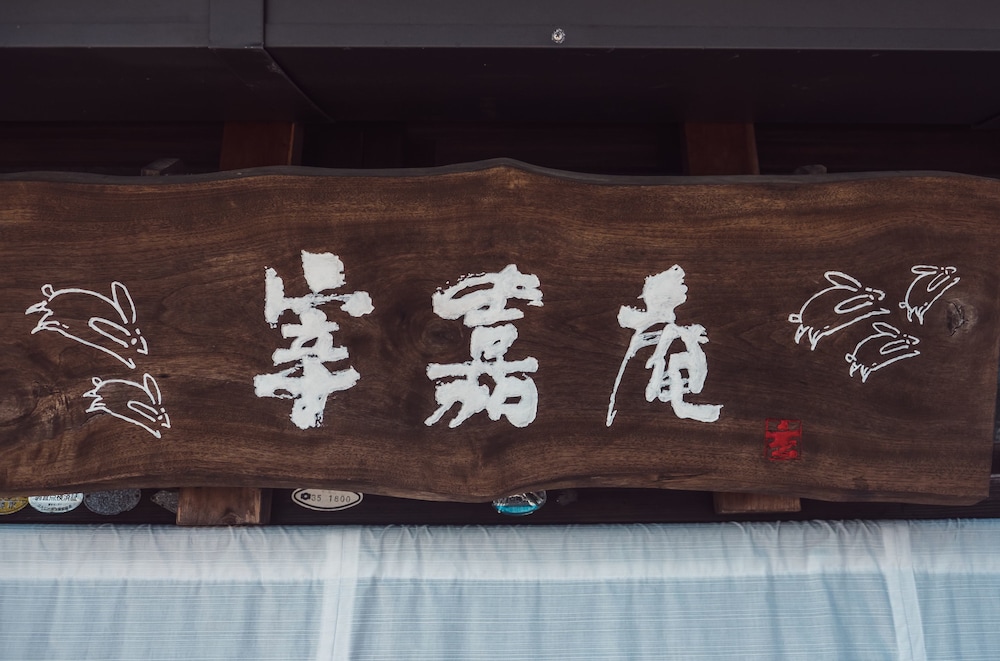 宰嘉庵
35 1800